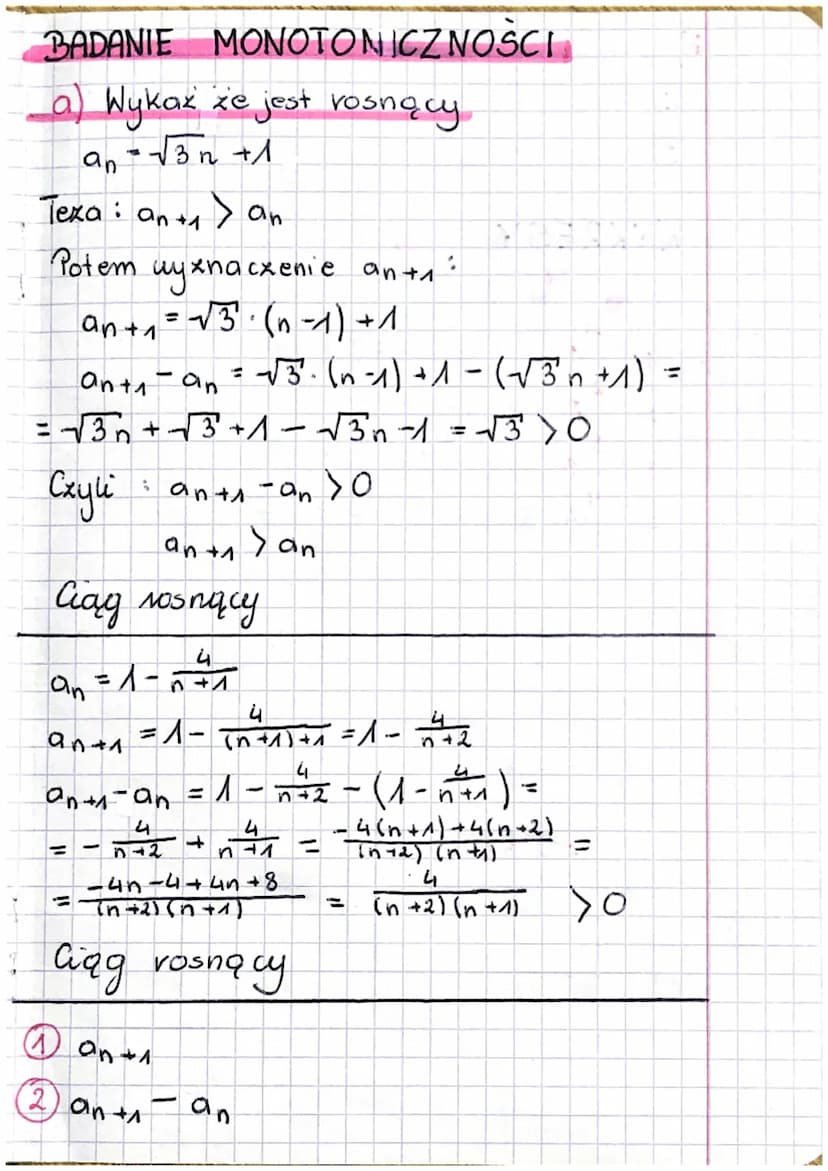 BADANIE MONOTONICZNOŚCI
a) Wykaż że jest rosnący
aₙ = √3n + 1
Teza : aₙ₊₁ > aₙ
Potem wyznaczenie aₙ₊₁ :
aₙ₊₁ = √3 · (n - 1) + 1
aₙ₊₁ - aₙ = √3 · (n - 1) + 1 - (√3n + 1) =
= √3n + √3 + 1 - √3n - 1 = √3 > 0
Czyli : aₙ₊₁ - aₙ > 0
aₙ₊₁ > aₙ
Ciąg rosnący
aₙ = 1 - 4/(n + 1)
aₙ₊₁ = 1 - 4/((n + 1) + 1) = 1 - 4/(n + 2)
aₙ₊₁ - aₙ = 1 - 4/(n + 2) - (1 - 4/(n + 1)) =
= - 4/(n + 2) + 4/(n + 1) = (-4(n + 1) + 4(n + 2))/((n + 2)(n + 1)) =
= (-4n - 4 + 4n + 8)/((n + 2)(n + 1)) = 4/((n + 2)(n + 1)) > 0
Ciąg rosnący
1 aₙ₊₁
2 aₙ₊₁ - aₙ